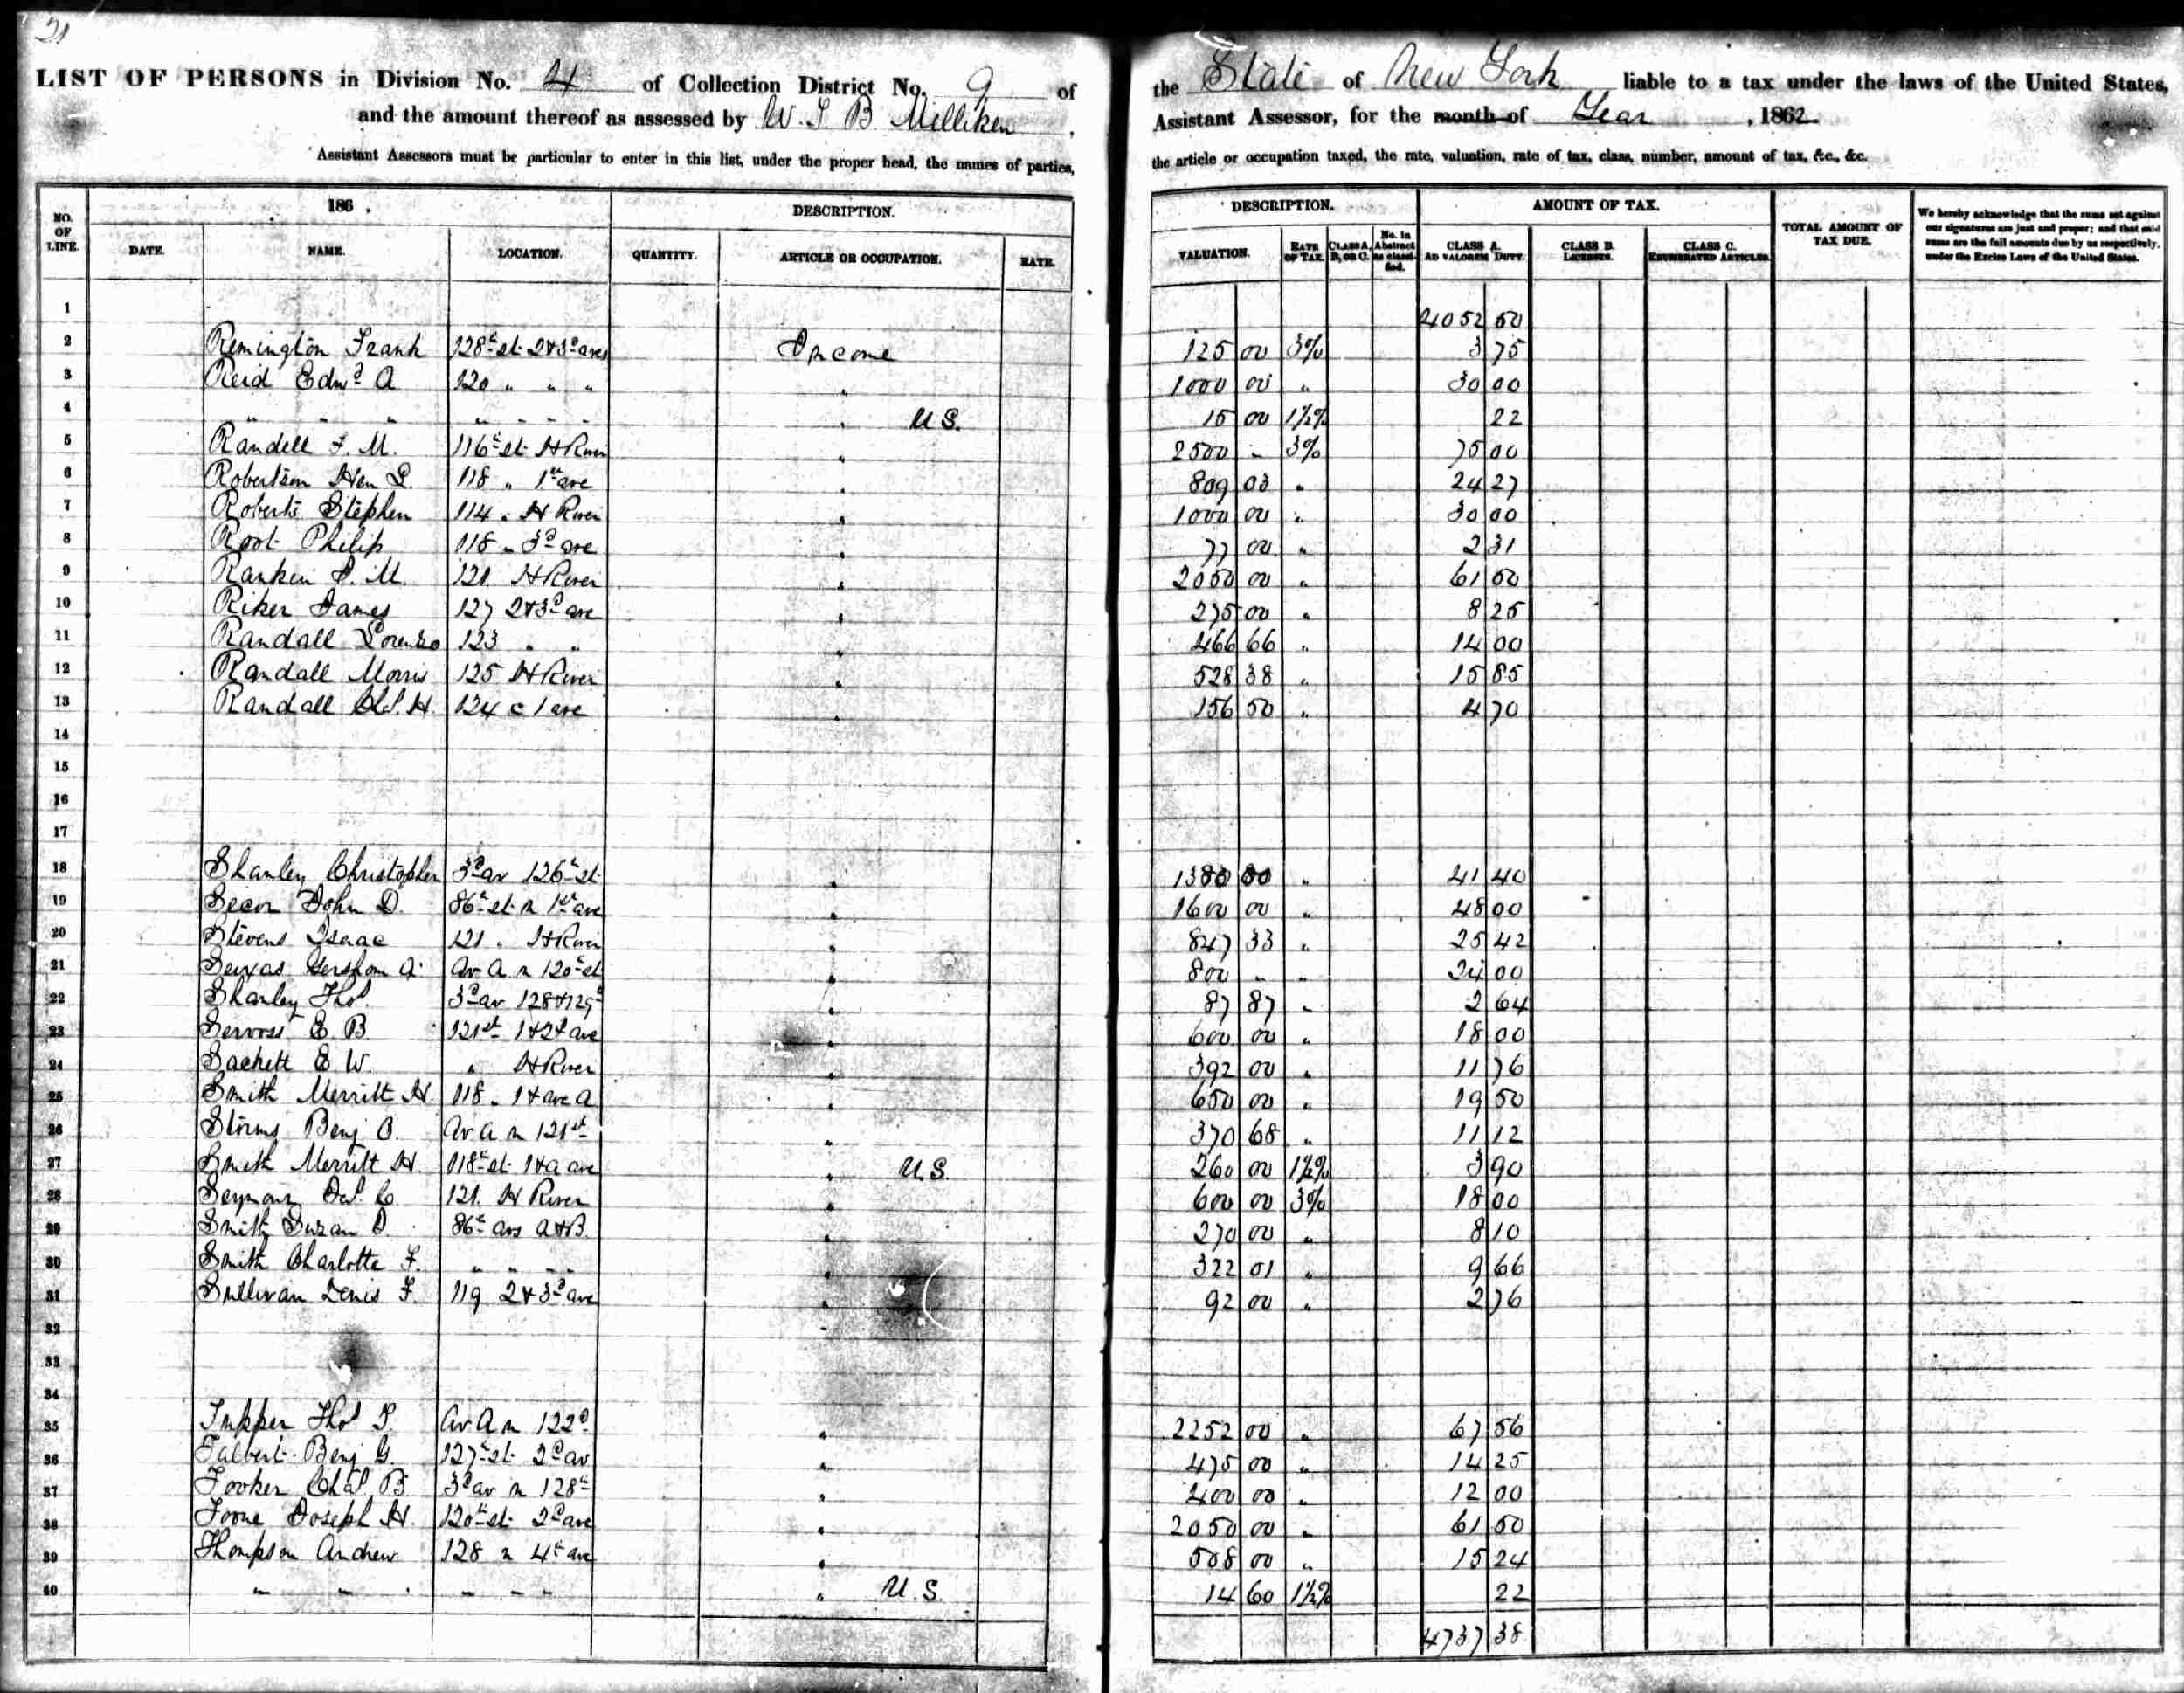 21
LIST OF PERSONS in Division No. 4 of Collection District No. 9 of the State of New York liable to a tax under the laws of the United States,
and the amount thereof as assessed by W. S B Milliken, Assistant Assessor, for the month of Year, 1862.
Assistant Assessors must be particular to enter in this list, under the proper head, the names of parties, the article or occupation taxed, the rate, valuation, rate of tax, class, number, amount of tax, &c., &c.
186 . DESCRIPTION. DESCRIPTION. AMOUNT OF TAX.
NO. OF LINE. DATE. NAME. LOCATION. QUANTITY. ARTICLE OR OCCUPATION. RATE. VALUATION. RATE OF TAX. CLASS A, B, OR C. No. in Abstract as classified. CLASS A. AD VALOREM DUTY. CLASS B. LICENSES. CLASS C. ENUMERATED ARTICLES. TOTAL AMOUNT OF TAX DUE. We hereby acknowledge that the sums set against our signatures are just and proper; and that said sums are the full amounts due by us respectively, under the Excise Laws of the United States.
1 4052 50
2 Remington Frank 128th st 2 & 3d aves Income 125 00 3% 3 75
3 Reid Edwd A 120 " " " " 1000 00 " 30 00
4 " " " " " " " " U S. 15 00 1½% 22
5 Randell F. M. 116th st H River " 2500 - 3% 75 00
6 Robertson Hen L. 118 " 1st ave " 809 03 " 24 27
7 Roberts Stephen 114 " H River " 1000 00 " 30 00
8 Root Philip 118 " 3d ave " 77 00 " 2 31
9 Rankin J. M. 121 H River " 2050 00 " 61 50
10 Riker James 127 2 & 3d ave " 275 00 " 8 25
11 Randall Lorenzo 123 " " " 466 66 " 14 00
12 Randall Morris 125 H River " 528 38 " 15 85
13 Randall Chs. H. 124 c 1 ave " 156 50 " 4 70
14
15
16
17
18 Shanley Christopher 3d av 126th st " 1380 00 " 41 40
19 Secor John D. 86th st n 1st ave " 1600 00 " 48 00
20 Stevens Isaac 121 " H River " 847 33 " 25 42
21 Seixas Gershom A. Av A n 120th st " 800 - " 24 00
22 Shanley Thos. 3d av 128 & 129th " 87 87 " 2 64
23 Servoss E B. 121st 1 & 2d ave " 600 00 " 18 00
24 Sackett E W. " H River " 392 00 " 11 76
25 Smith Merritt H. 118 " 1 & ave A " 650 00 " 19 50
26 Storms Benj O. Av A n 121st " 370 68 " 11 12
27 Smith Merritt H. 118th st 1 & A ave " U S. 260 00 1½% 3 90
28 Seymour Jas. Co. 121 H River " 600 00 3% 18 00
29 Smith Susan D. 86th avs A & B. " 270 00 " 8 10
30 Smith Charlotte F. " " " " " 322 01 " 9 66
31 Sullivan Denis F. 119 2 & 3d ave " 92 00 " 2 76
32
33
34
35 Tupper Thos. P. Av A n 122d " 2252 00 " 67 56
36 Talbert Benj G. 127th st 2d av " 475 00 " 14 25
37 Tooker Chas. B 3d av n 128th " 400 00 " 12 00
38 Toone Joseph H. 120th st 2d ave " 2050 00 " 61 50
39 Thompson Andrew 128 n 4th ave " 508 00 " 15 24
40 " " " " " " " U. S. 14 60 1½% 22
4737 38